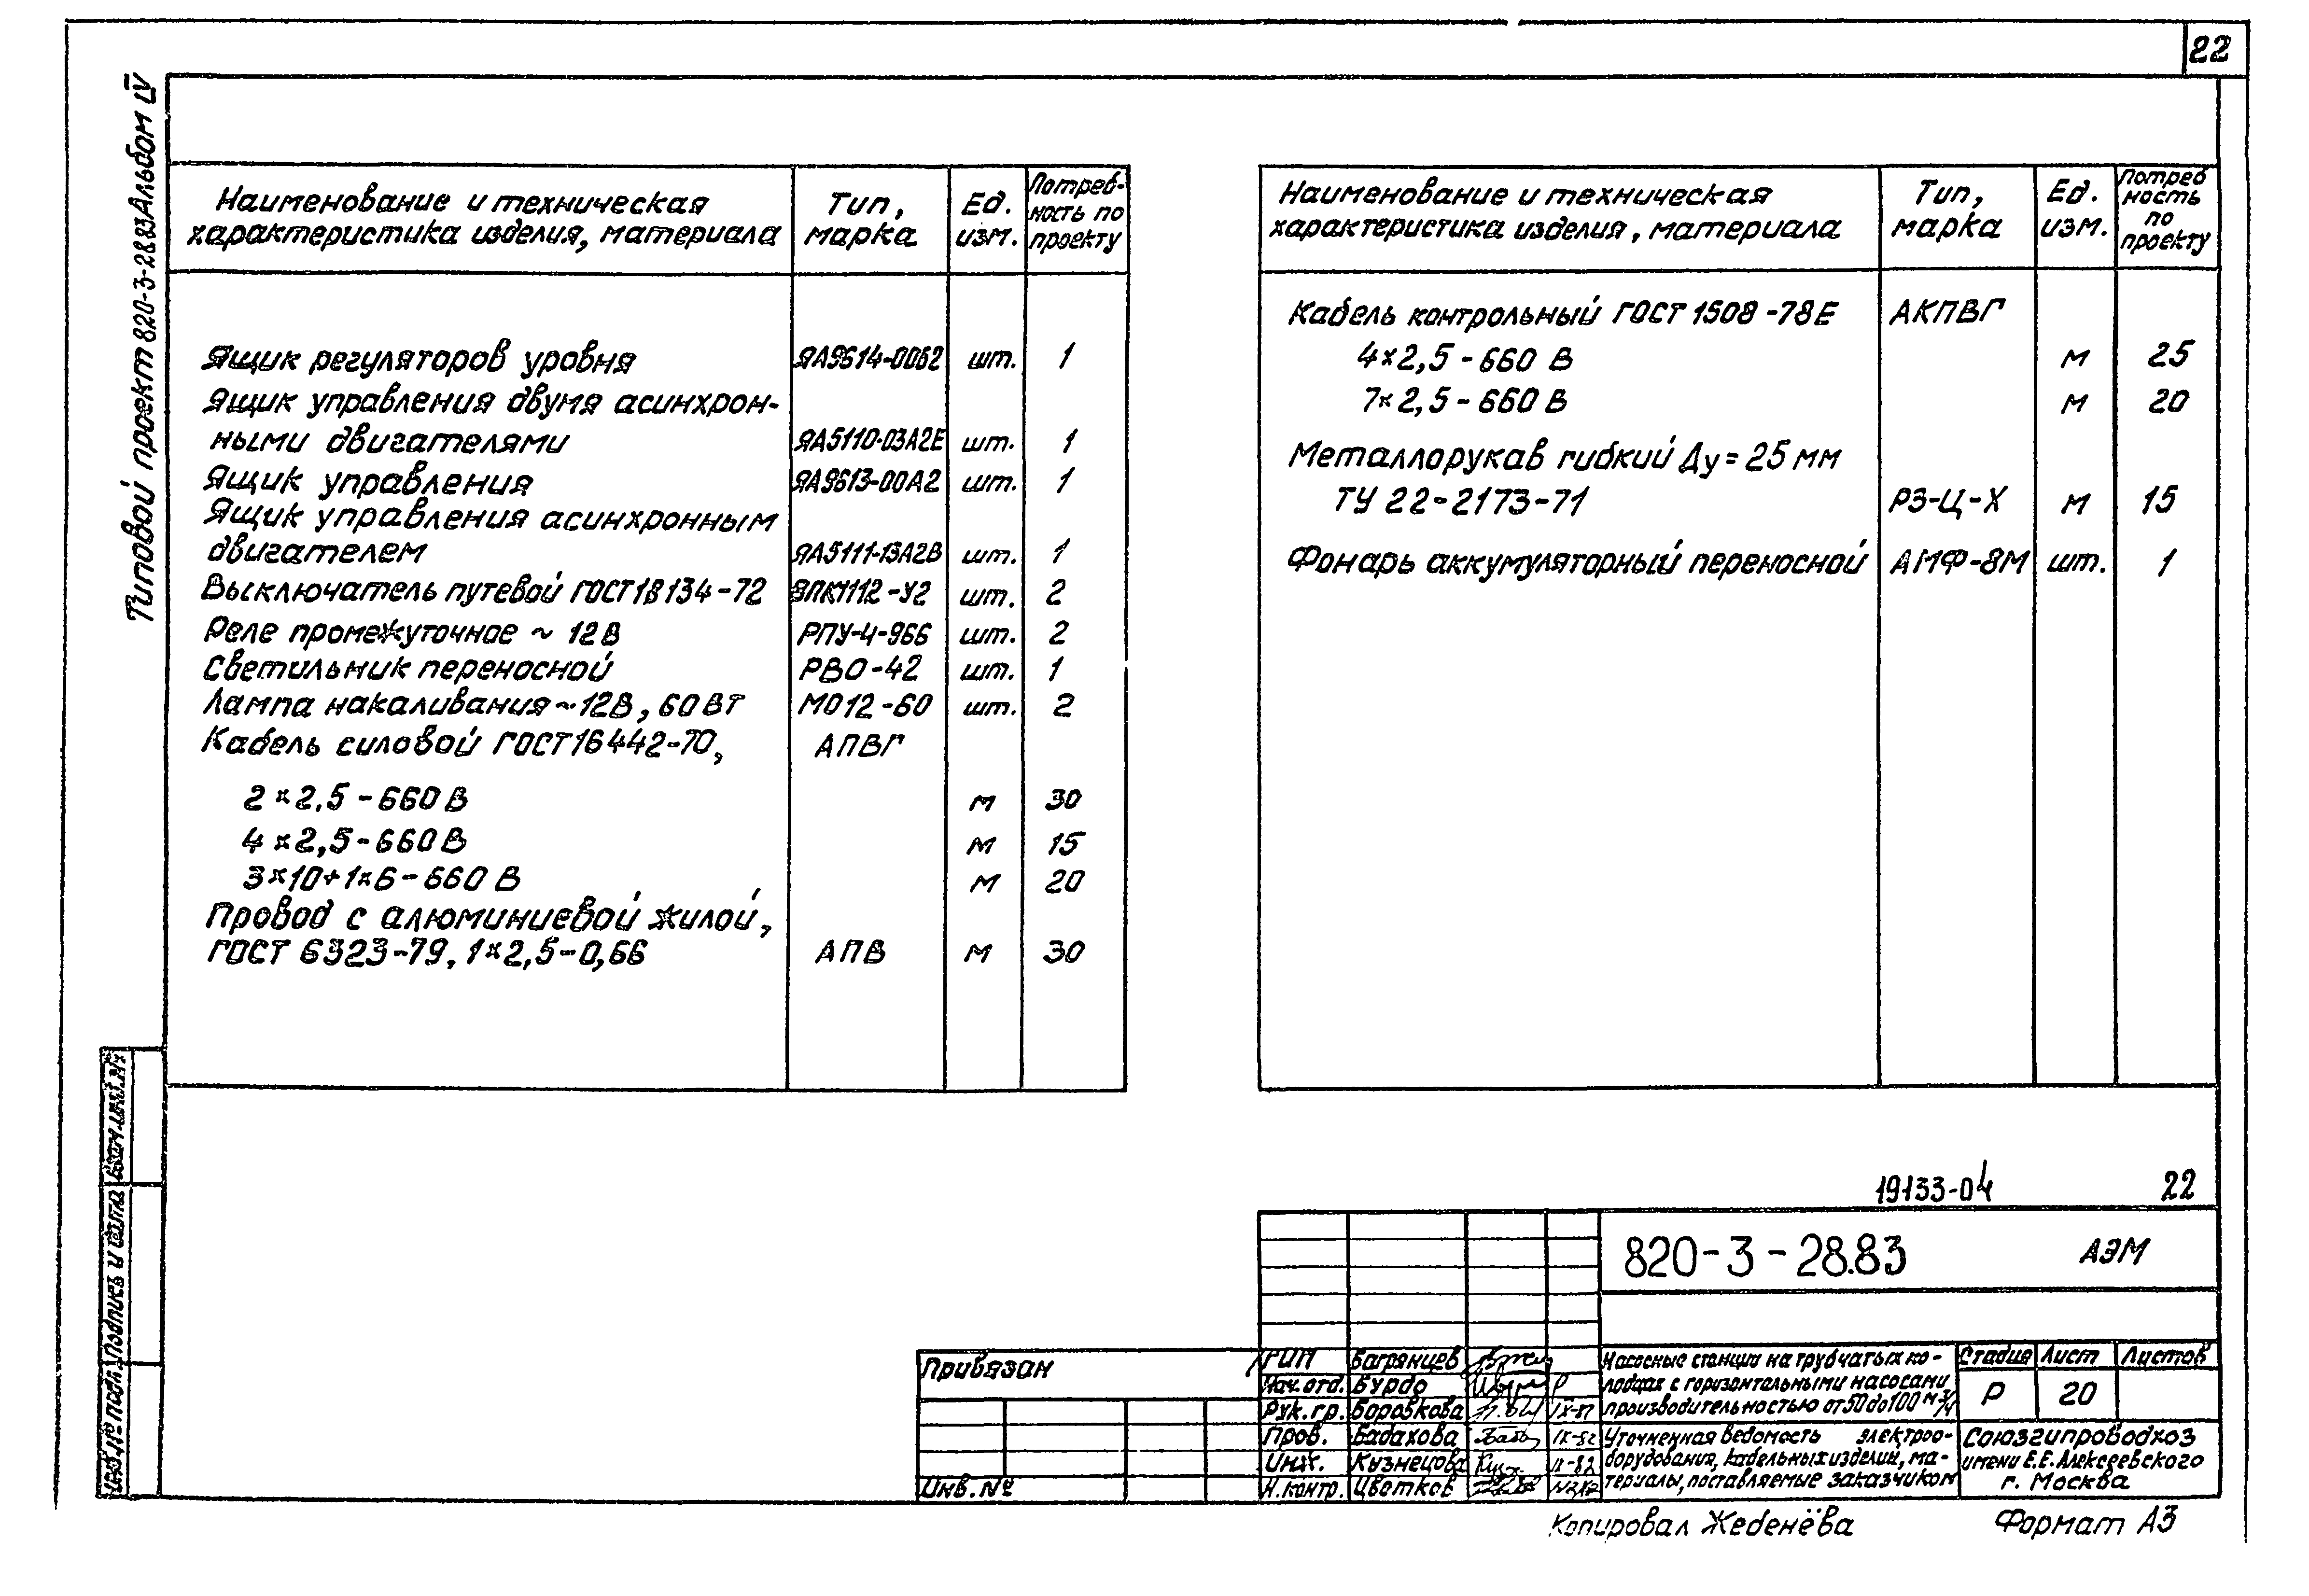 22
Типовой проект 820-3-28.83 Альбом IV
Наименование и техническая характеристика изделия, материала
Тип, марка
Ед. изм.
Потреб-ность по проекту
Ящик регуляторов уровня ЯА9614-0062 шт. 1
Ящик управления двумя асинхрон-
ными двигателями ЯА5110-03А2Е шт. 1
Ящик управления ЯА9613-00А2 шт. 1
Ящик управления асинхронным
двигателем ЯА5111-13А2В шт. 1
Выключатель путевой ГОСТ 18134-72 ВПК1112-У2 шт. 2
Реле промежуточное ~ 12В РПУ-4-966 шт. 2
Светильник переносной РВО-42 шт. 1
Лампа накаливания ~12В, 60Вт МО12-60 шт. 2
Кабель силовой ГОСТ 16442-70, АПВГ
2×2,5-660В м 30
4×2,5-660В м 15
3×10+1×6-660В м 20
Провод с алюминиевой жилой,
ГОСТ 6323-79, 1×2,5-0,66 АПВ м 30
Наименование и техническая характеристика изделия, материала
Тип, марка
Ед. изм.
Потреб ность по проекту
Кабель контрольный ГОСТ 1508-78Е АКПВГ
4×2,5-660 В м 25
7×2,5-660 В м 20
Металлорукав гибкий Ду=25мм
ТУ 22-2173-71 РЗ-Ц-Х м 15
Фонарь аккумуляторный переносной АМФ-8М шт. 1
19133-04 22
820-3-28.83 АЭМ
Привязан
Инв.№
ГИП Багрянцев
Нач.отд. Бурдо
Рук.гр. Боровкова
Пров. Бадахова IX-82
Инж. Кузнецова IX-82
Н.контр. Цветков
Насосные станции на трубчатых ко-
лодцах с горизонтальными насосами
производительностью от 50 до 100 м³/ч
Стадия Лист Листов
Р 20
Уточненная ведомость электроо-
борудования, кабельных изделий, ма-
териалы, поставляемые заказчиком
Союзгипроводхоз
имени Е.Е.Алексеевского
г. Москва
Инв.№ подл. Подпись и дата Взам.инв.№
Копировал Жебенёва Формат А3